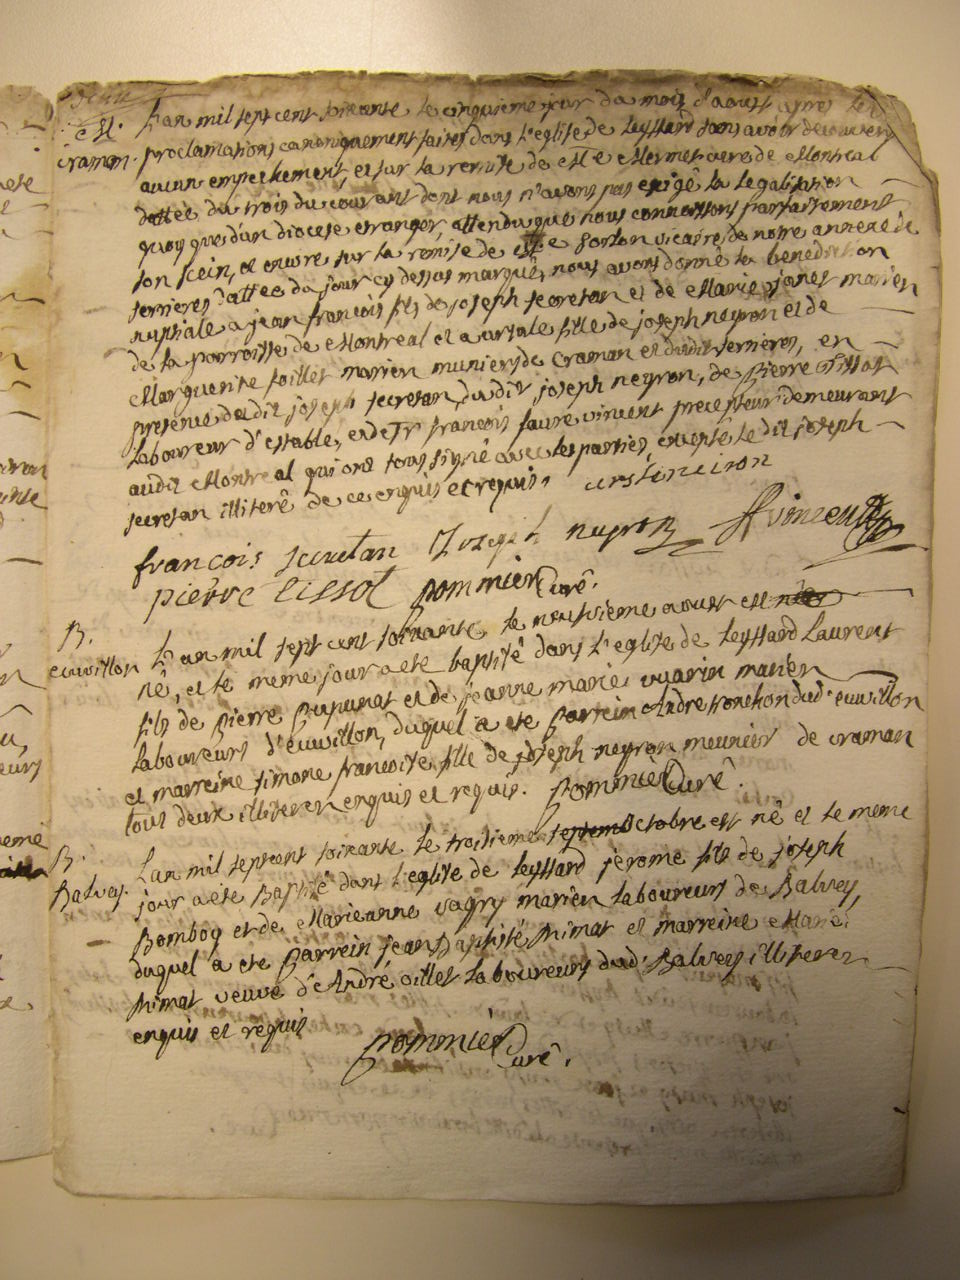 M.
craman.
L'an mil sept cent soixante le cinquieme jour du mois d'aoust apres les
proclamations canoniquement faites dans l'eglise de Leyssard sans avoir decouvert
aucun empechement, et sur la remise de Mre Mermet curé de Montreal
dattée du trois du courant dont nous n'avons pas exigé la legalisation
quoy que d'un diocese etranger, attendu que nous connoissons parfaitement
son scein, et encore sur la remise de Gorlon vicaire de notre annexe de
serrieres dattée du jour cy dessus marqué, nous avons donné la benediction
nuptiale a jean francois fils de joseph secretan et de Marie janet mariés
de la parroisse de Montreal et a ursule fille de joseph neyron et de
Marguerite soillet mariés muniers de craman et dudit serrieres, en
presence dudit joseph secretan, dudit joseph neyron, de Pierre Tissot
laboureur d'estable, et de Sr francois faure vincent precepteur demeurant
audit Montreal qui ont tous signé avec les parties, excepté le dit joseph
secretan illiteré de ce enquis et requis. ursle neiron
francois secretan Joseph neyron vincent
pierre tissot pommier Curé.
B.
cuvvillon
L'an mil sept cent soixante le neufvieme aoust est
né, et le meme jour a eté baptisé dans l'eglise de Leyssard Laurent
fils de Pierre Pupunat et de jeanne marie vuarin mariés
laboureurs d'cuvvillon, duquel a eté Parrein André tronchon dud. cuvvillon
et marreine simone francoise fille de joseph neyron meunier de craman
tous deux illiteres enquis et requis. pommier Curé.
B.
Balvay.
L'an mil sept cent soixante le troisieme octobre est né et le meme
jour a eté Baptisé dans l'eglise de Leyssard jerome fils de joseph
Bomboy et de Marieanne vagry mariés laboureurs de Balvey,
duquel a eté Parrein jean Baptiste nimat et marreine Marie
nimat veuve d'André oillet laboureurs dud. Balvey illiteres
enquis et requis
pommier Curé.